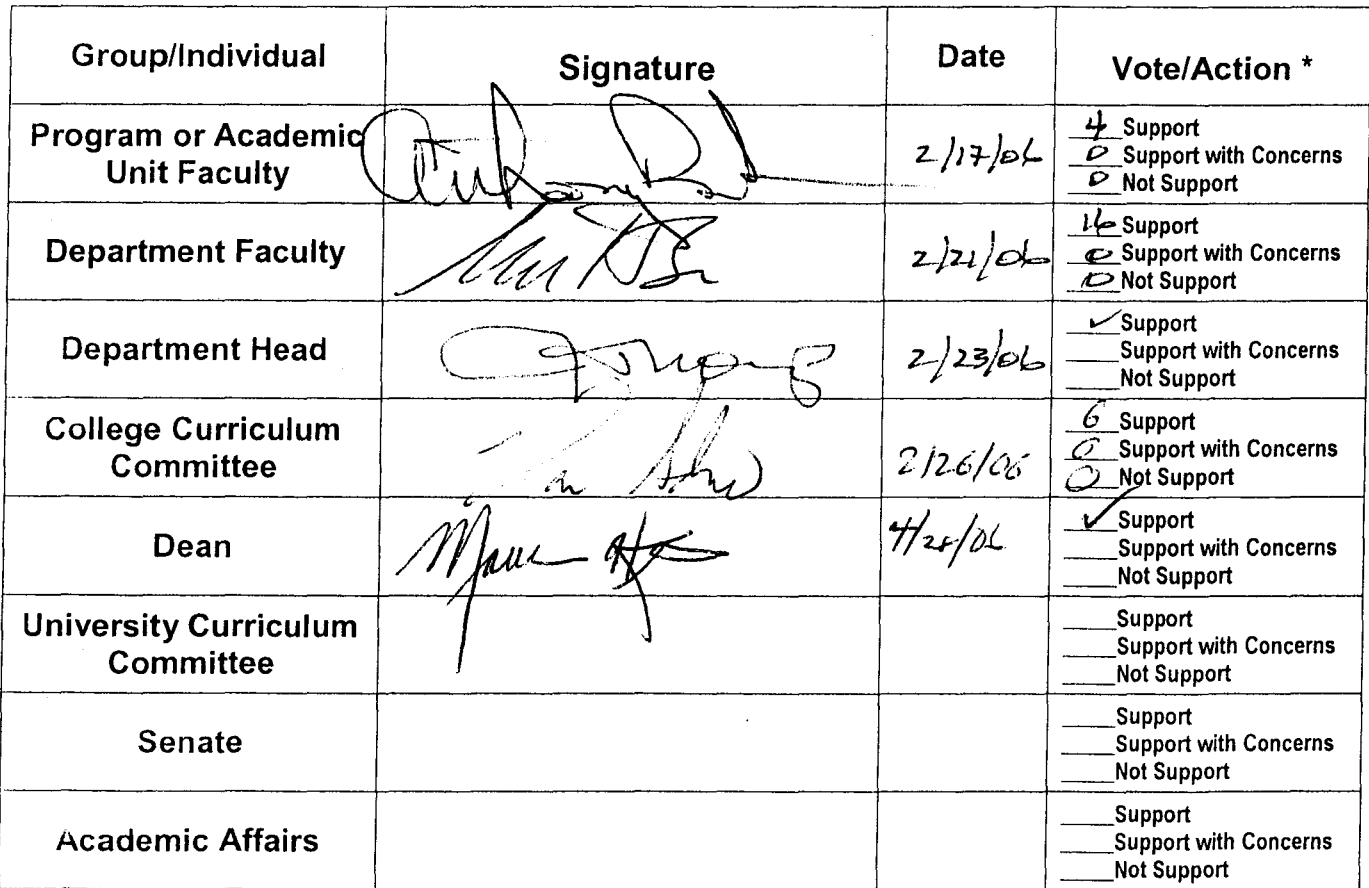 Group/Individual Signature Date Vote/Action *
Program or Academic
Unit Faculty
2/17/06
4 Support
0 Support with Concerns
0 Not Support
Department Faculty
2/21/06
16 Support
0 Support with Concerns
0 Not Support
Department Head
2/23/06
✓ Support
____Support with Concerns
____Not Support
College Curriculum
Committee
2/26/06
6 Support
0 Support with Concerns
0 Not Support
Dean
4/28/06
✓ Support
____Support with Concerns
____Not Support
University Curriculum
Committee
____Support
____Support with Concerns
____Not Support
Senate
____Support
____Support with Concerns
____Not Support
Academic Affairs
____Support
____Support with Concerns
____Not Support